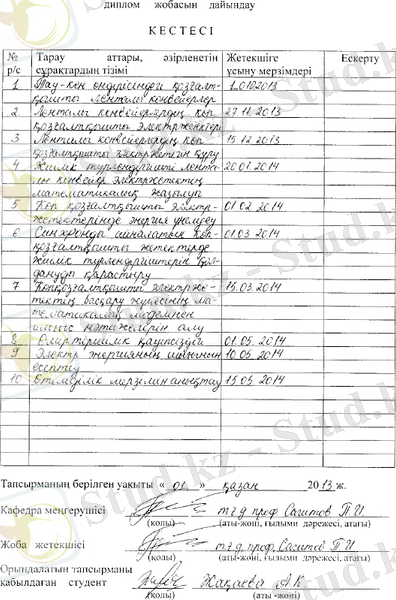 диплом жобасын дайындау
КЕСТЕСІ
№ р/с
Тарау аттары, әзірленетін сұрақтардың тізімі
Жетекшіге ұсыну мерзімдері
Ескерту
1 Тау-кен өндірісіндегі қозғалт-
қышты ленталы конвейерлер
2 Ленталы конвейерлердің көп 27.11.2013
қозғалтқышты электржетектері
3 Ленталы конвейерлердің көп 15.12.2013
қозғалтқышты электржетегін құру
4 Жиілік түрлендіргішті лента- 20.01.2014
лы конвейер электржетектің
математикалық жазылуы
5 Көп қозғалтқышты электр- 01.02.2014
жетектерінде энергия үнемдеу
6 Синхронды айналатын көп- 01.03.2014
қозғалтқышты жетектерде
жиілік түрлендіргіштерін қол-
дануды қарастыру
7 Көпқозғалтқышты электрже- 15.03.2014
тіктің басқару жүйесінің ма-
тематикалық моделінен
шығыс нәтижелерін алу
8 Өміртіршілік қауіпсіздігі 01.05.2014
9 Электр энергияның шығынын 10.05.2014
есептеу
10 Өтімділік мерзімін анықтау 15.05.2014
Тапсырманың берілген уақыты « 01 » қазан 2013 ж.
Кафедра меңгерушісі т.ғ.д. проф Сагитов П.И
(қолы) (аты-жөні, ғылыми дәрежесі, атағы)
Жоба жетекшісі т.ғ.д. проф. Сагитов П.И.
(қолы) (аты-жөні, ғылыми дәрежесі, атағы)
Орындалатын тапсырманы
қабылдаған студент Жақаева А.К
(қолы) (аты -жөні)
Stud.kz - Stud.kz